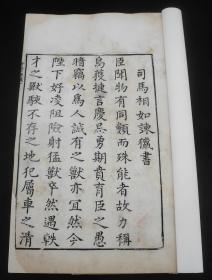 司馬相如諫獵書
臣聞物有同類而殊能者故力稱
烏獲捷言慶忌勇期賁育臣之愚
暗竊以爲人誠有之獸亦宜然今
陛下好凌阻險射猛獸卒然遇軼
才之獸駭不存之地犯屬車之清